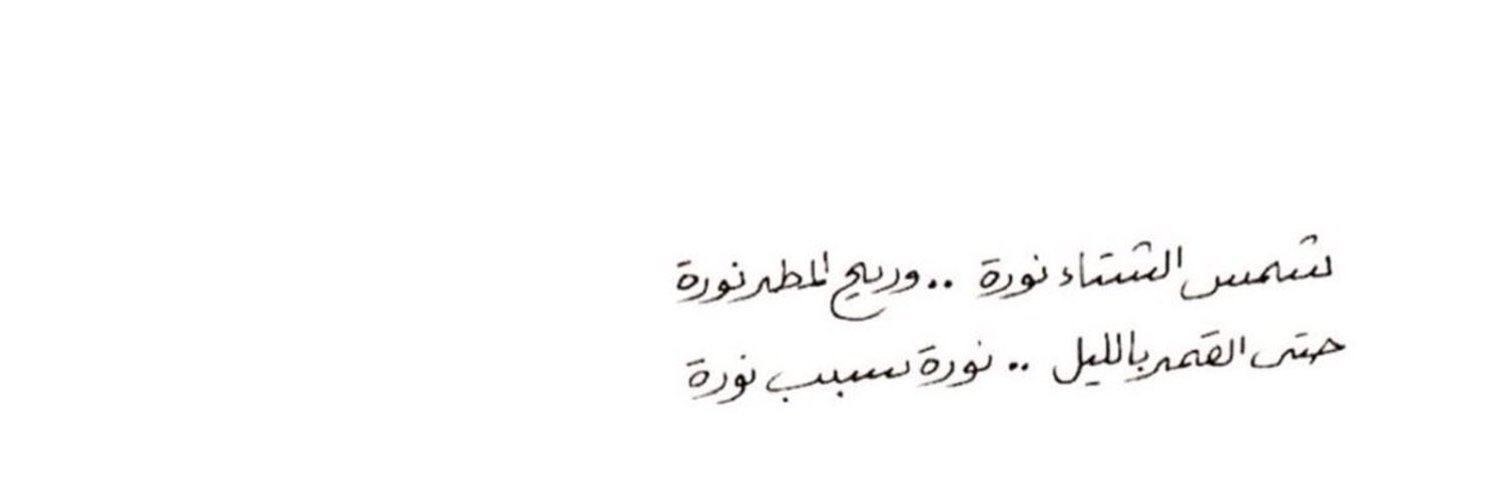 شمس الشتاء نورة .. وريح المطر نورة
حتى القمر بالليل .. نورة سبب نورة